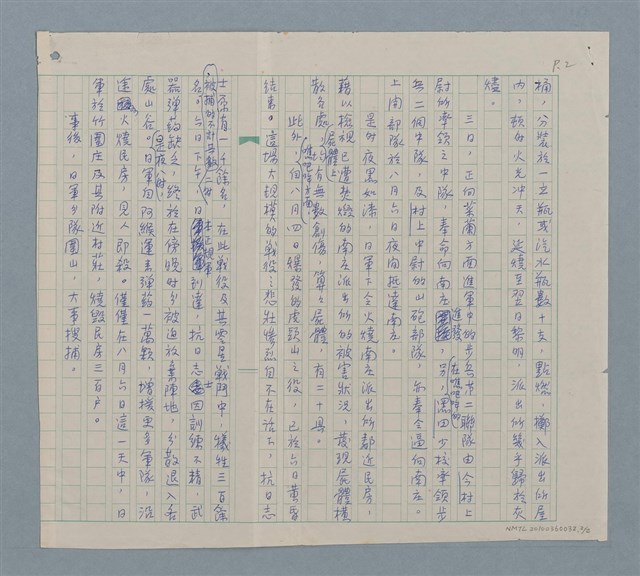 P.2
桶，分裝於一立瓶或汽水瓶數十支，點燃，擲入派出所屋
內，頓時火光冲天，延燒至翌日黎明，派出所幾乎歸於灰
燼。
三日，正向宜蘭方面進軍中的步兵第二聯隊由今村上
尉所率領之中隊，奉命向南庄進發，另，黑田少校率領步
兵二個中隊，及村上中尉的山砲部隊，向奉令逼向南庄。
上開部隊於八月六日夜間抵達南庄。
是時夜黑如漆，日軍下令火燒南庄派出所鄰近民房，
藉以檢視已遭焚燬的南庄派出所的被害狀況，發現屍體橫
散各處，屍體上有無數創傷，算之屍體，有二十具。
此外，八月四日爆發的虎頭山之役，已於六日黃昏
結束。這場大規模的戰役，悲壯慘烈自不在話下，抗日志
士原有一千餘名，在此戰役及其零星戰鬥中，犧牲三百餘
名，被捕的不計其數。六日下午二時，日本正規軍到達，抗日志士因訓練不精，武
器彈藥缺乏，終於在傍晚時分被迫放棄陣地，分散退入各
處山谷。是夜八時，日軍自阿緱運來彈藥一萬顆，增援更多軍隊，沿
途火燒民房，見人即殺。僅僅在八月六日這一天中，日
軍於竹圍庄及其附近村莊，燒毀民房三百戶。
事後，日軍分隊圍山，大事搜捕。
NMTL 20100360032